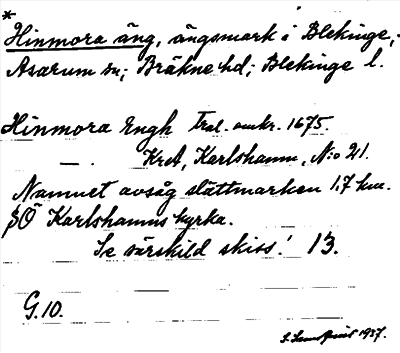 *
Hinmora äng, ängsmark i Blekinge,
Asarum sn; Bräkne hd; Blekinge l.
Hinmora Engh Trol. omkr. 1675.
—. KrA, Karlshamn, N:o 21.
Namnet avsåg slåttmarken 1,7 km.
SÖ Karlshamns kyrka.
Se särskild skiss! 13.
G.10.
1937.